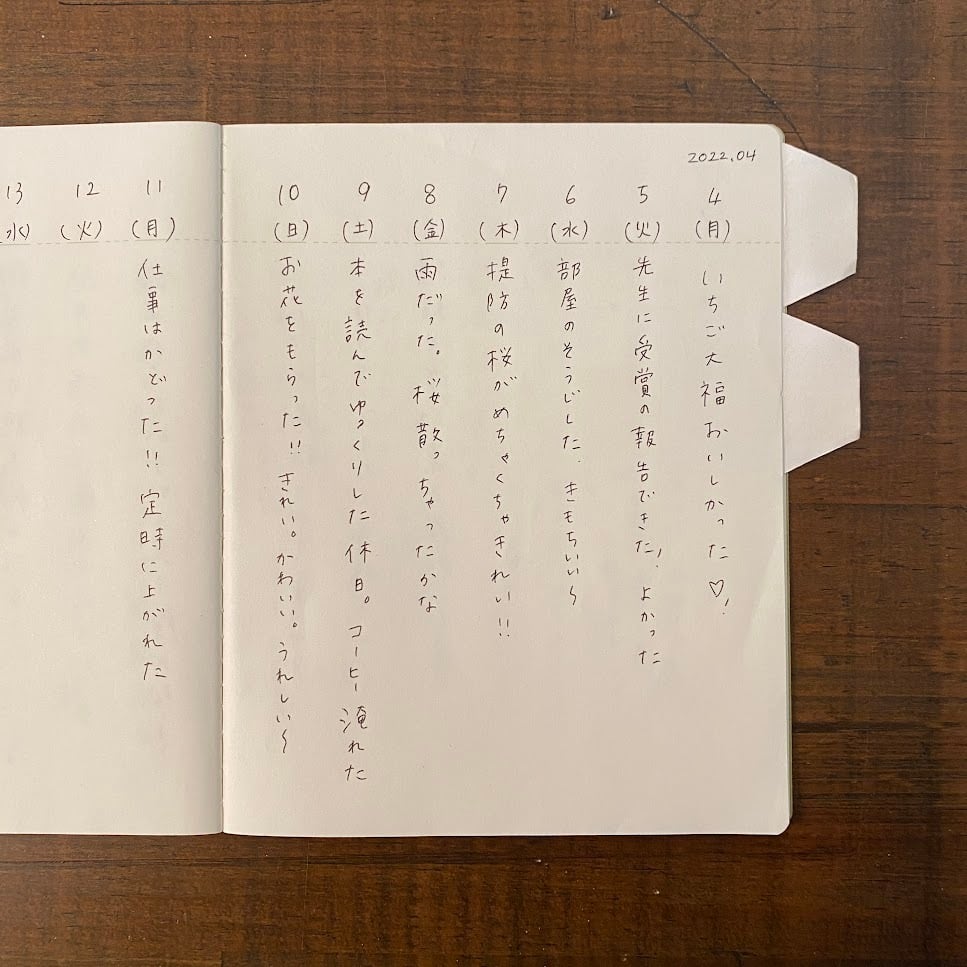 2022.04
4
(月)
いちご大福おいしかった♡!
5
(火)
先生に受賞の報告できた!よかった
6
(水)
部屋のそうじした.きもちいい〜
7
(木)
堤防の桜がめちゃくちゃきれい!!
8
(金)
雨だった。桜散っちゃったかな
9
(土)
本を読んでゆっくりした休日。コーヒー淹れた
10
(日)
お花をもらった!!きれい。かわいい。うれしい〜
11
(月)
仕事はかどった!!定時に上がれた
12
(火)
13
(水)